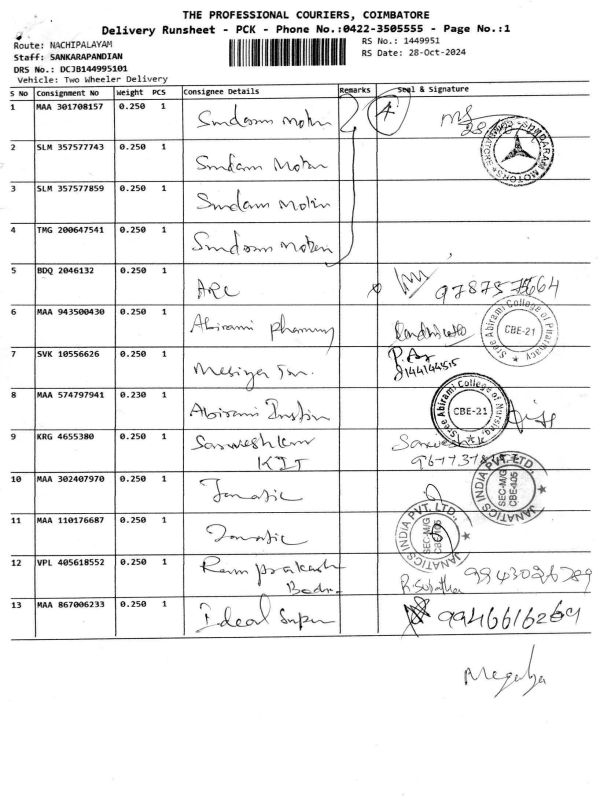 THE PROFESSIONAL COURIERS, COIMBATORE
Delivery Runsheet - PCK - Phone No.:0422-3505555 - Page No.:1
Route: NACHIPALAYAM
RS No.: 1449951
Staff: SANKARAPANDIAN
RS Date: 28-Oct-2024
DRS No.: DCJB144995101
Vehicle: Two Wheeler Delivery
S No Consignment No Weight PCS Consignee Details Remarks Seal & Signature
1 MAA 301708157 0.250 1 Sundaram Motor 4
SUNDARAM MOTORS
2 SLM 357577743 0.250 1 Sundaram Motor
3 SLM 357577859 0.250 1 Sundaram Motor
4 TMG 200647541 0.250 1 Sundaram Motor
5 BDQ 2046132 0.250 1 ARC
6 MAA 943500430 0.250 1 Abirami Pharmacy
Sree Abirami College of Pharmacy
CBE-21
7 SVK 10556626 0.250 1
8 MAA 574797941 0.230 1 Abirami
Sree Abirami College of Nursing
CBE-21
9 KRG 4655380 0.250 1 Sarweshkumar
KIT
10 MAA 302407970 0.250 1 Janatic
JANATICS INDIA PVT. LTD.,
SEC-M/G
CBE-105
11 MAA 110176687 0.250 1 Janatic
JANATICS INDIA PVT. LTD.,
SEC-M/G
CBE-105
12 VPL 405618552 0.250 1 Ram prakash 9943026789
13 MAA 867006233 0.250 1 Ideal Super 9946616269